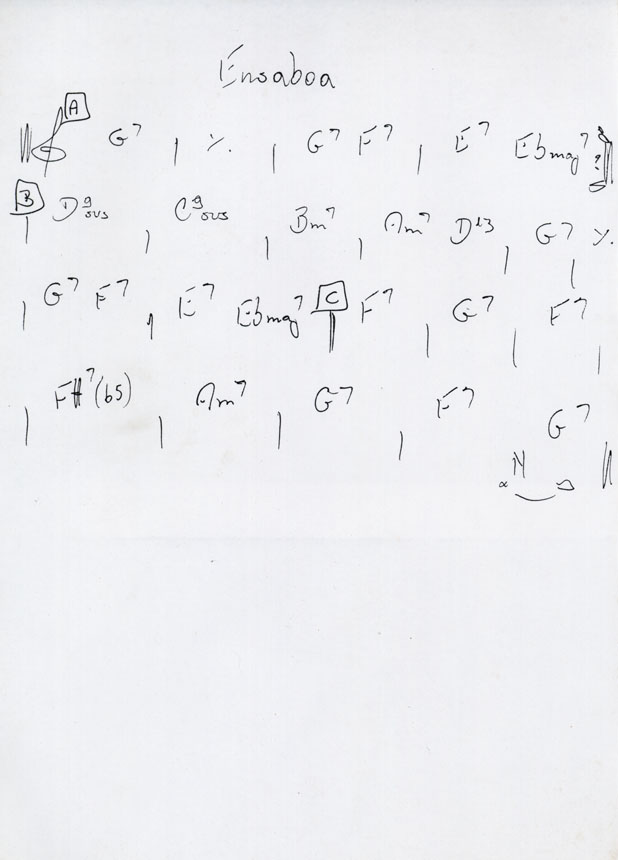 Ensaboa
A
G7 | ٪ | G7 F7 | E7 Ebmaj7
B D9sus | C9sus | Bm7 | Am7 D13 | G7 | ٪
| G7 F7 | E7 Ebmaj7 C F7 | G7 | F7 |
| F#7(b5) | Am7 | G7 | F7
G7